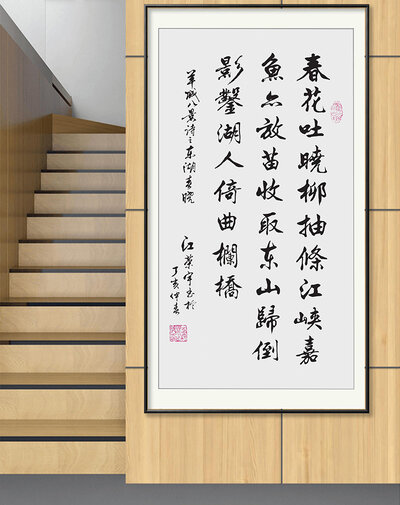 春花吐曉柳抽條江峽嘉
魚亦放苗收取东山歸倒
影鑿湖人倚曲欄橋
羊城八景詩之东湖春曉
江榮宇書於
丁亥仲春